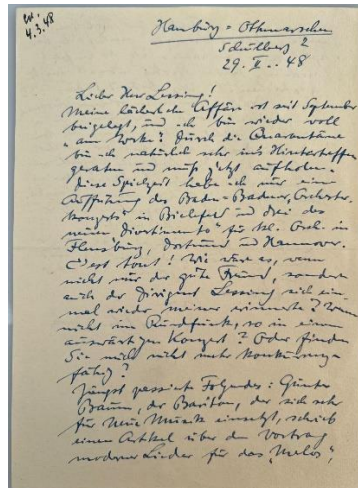 erl.
4.3.48
Hamburg-Othmarschen
Schulberg 2
29.II.48
Lieber Herr Lessing!
Meine lächerliche Affäre ist seit September
beigelegt, und ich bin wieder voll
"am Werke". Durch die Quarantäne
bin ich natürlich sehr ins Hintertreffen
geraten und muß jetzt aufholen.
Diese Spielzeit habe ich nur eine
Aufführung des Baden-Badener Orchester-
konzerts in Bielefeld und drei des
neuen Divertimento für kl. Orch. in
Flensburg, Dortmund und Hannover.
C'est tout! Wie wäre es, wenn
nicht nur der gute Freund, sondern
auch der Dirigent Lessing sich ein-
mal wieder meiner erinnerte? Wenn
nicht im Rundfunk, so in einem
auswärtigen Konzert? Oder finden
Sie mich nicht mehr konkurrenz-
fähig?
Jüngst passierte Folgendes: Günther
Baum, der Bariton, der sich sehr
für Neue Musik einsetzt, schrieb
einen Artikel über den Vortrag
moderner Lieder für das "Melos",